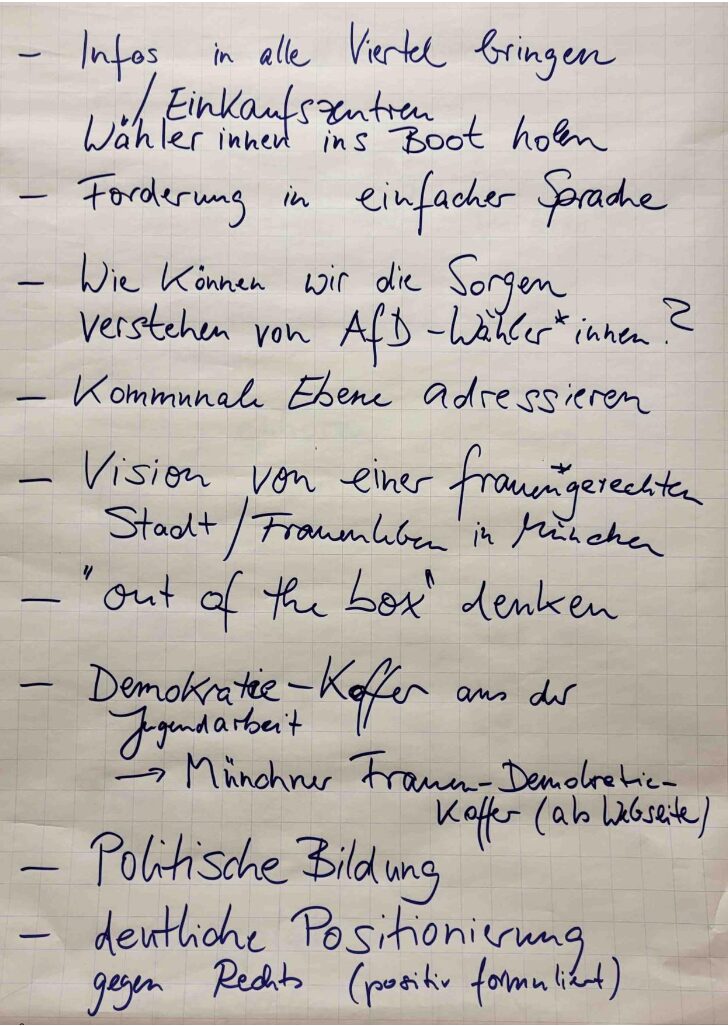 - Infos in alle Viertel bringen
/ Einkaufszentren
Wähler innen ins Boot holen
- Forderung in einfacher Sprache
- Wie können wir die Sorgen
verstehen von AfD-Wähler*innen?
- Kommunale Ebene adressieren
- Vision von einer frauen*gerechten
Stadt / Frauenleben in München
- "out of the box" denken
- Demokratie-Koffer aus der
Jugendarbeit
→ Münchner Frauen-Demokratie-
Koffer (als Webseite)
- Politische Bildung
- deutliche Positionierung
gegen Rechts (positiv formuliert)